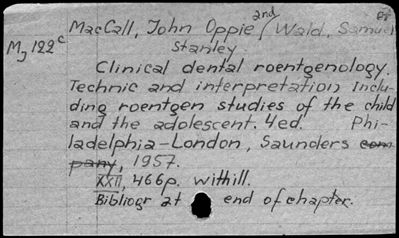 MacCall, John Oppie, 2nd / Wald, Samuel
Stanley
M, 122c
Clinical dental roentgenology.
Technic and interpretation, inclu-
ding roentgen studies of the child
and the adolescent. 4ed. Phi-
ladelphia-London, Saunders com-
pany, 1957.
XXII, 466p. withill.
Bibliogr at end of chapter.